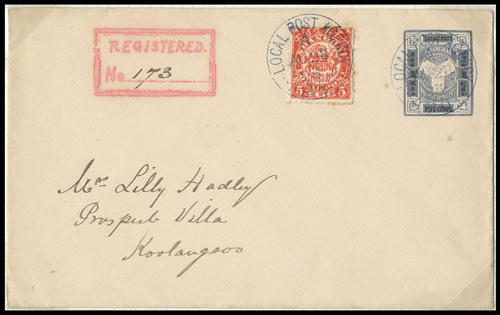 REGISTERED.
No. 173
LOCAL POST
LOCAL POST
5 5
Mrs Lilly Hadley
Prospect Villa
Koolangsoo